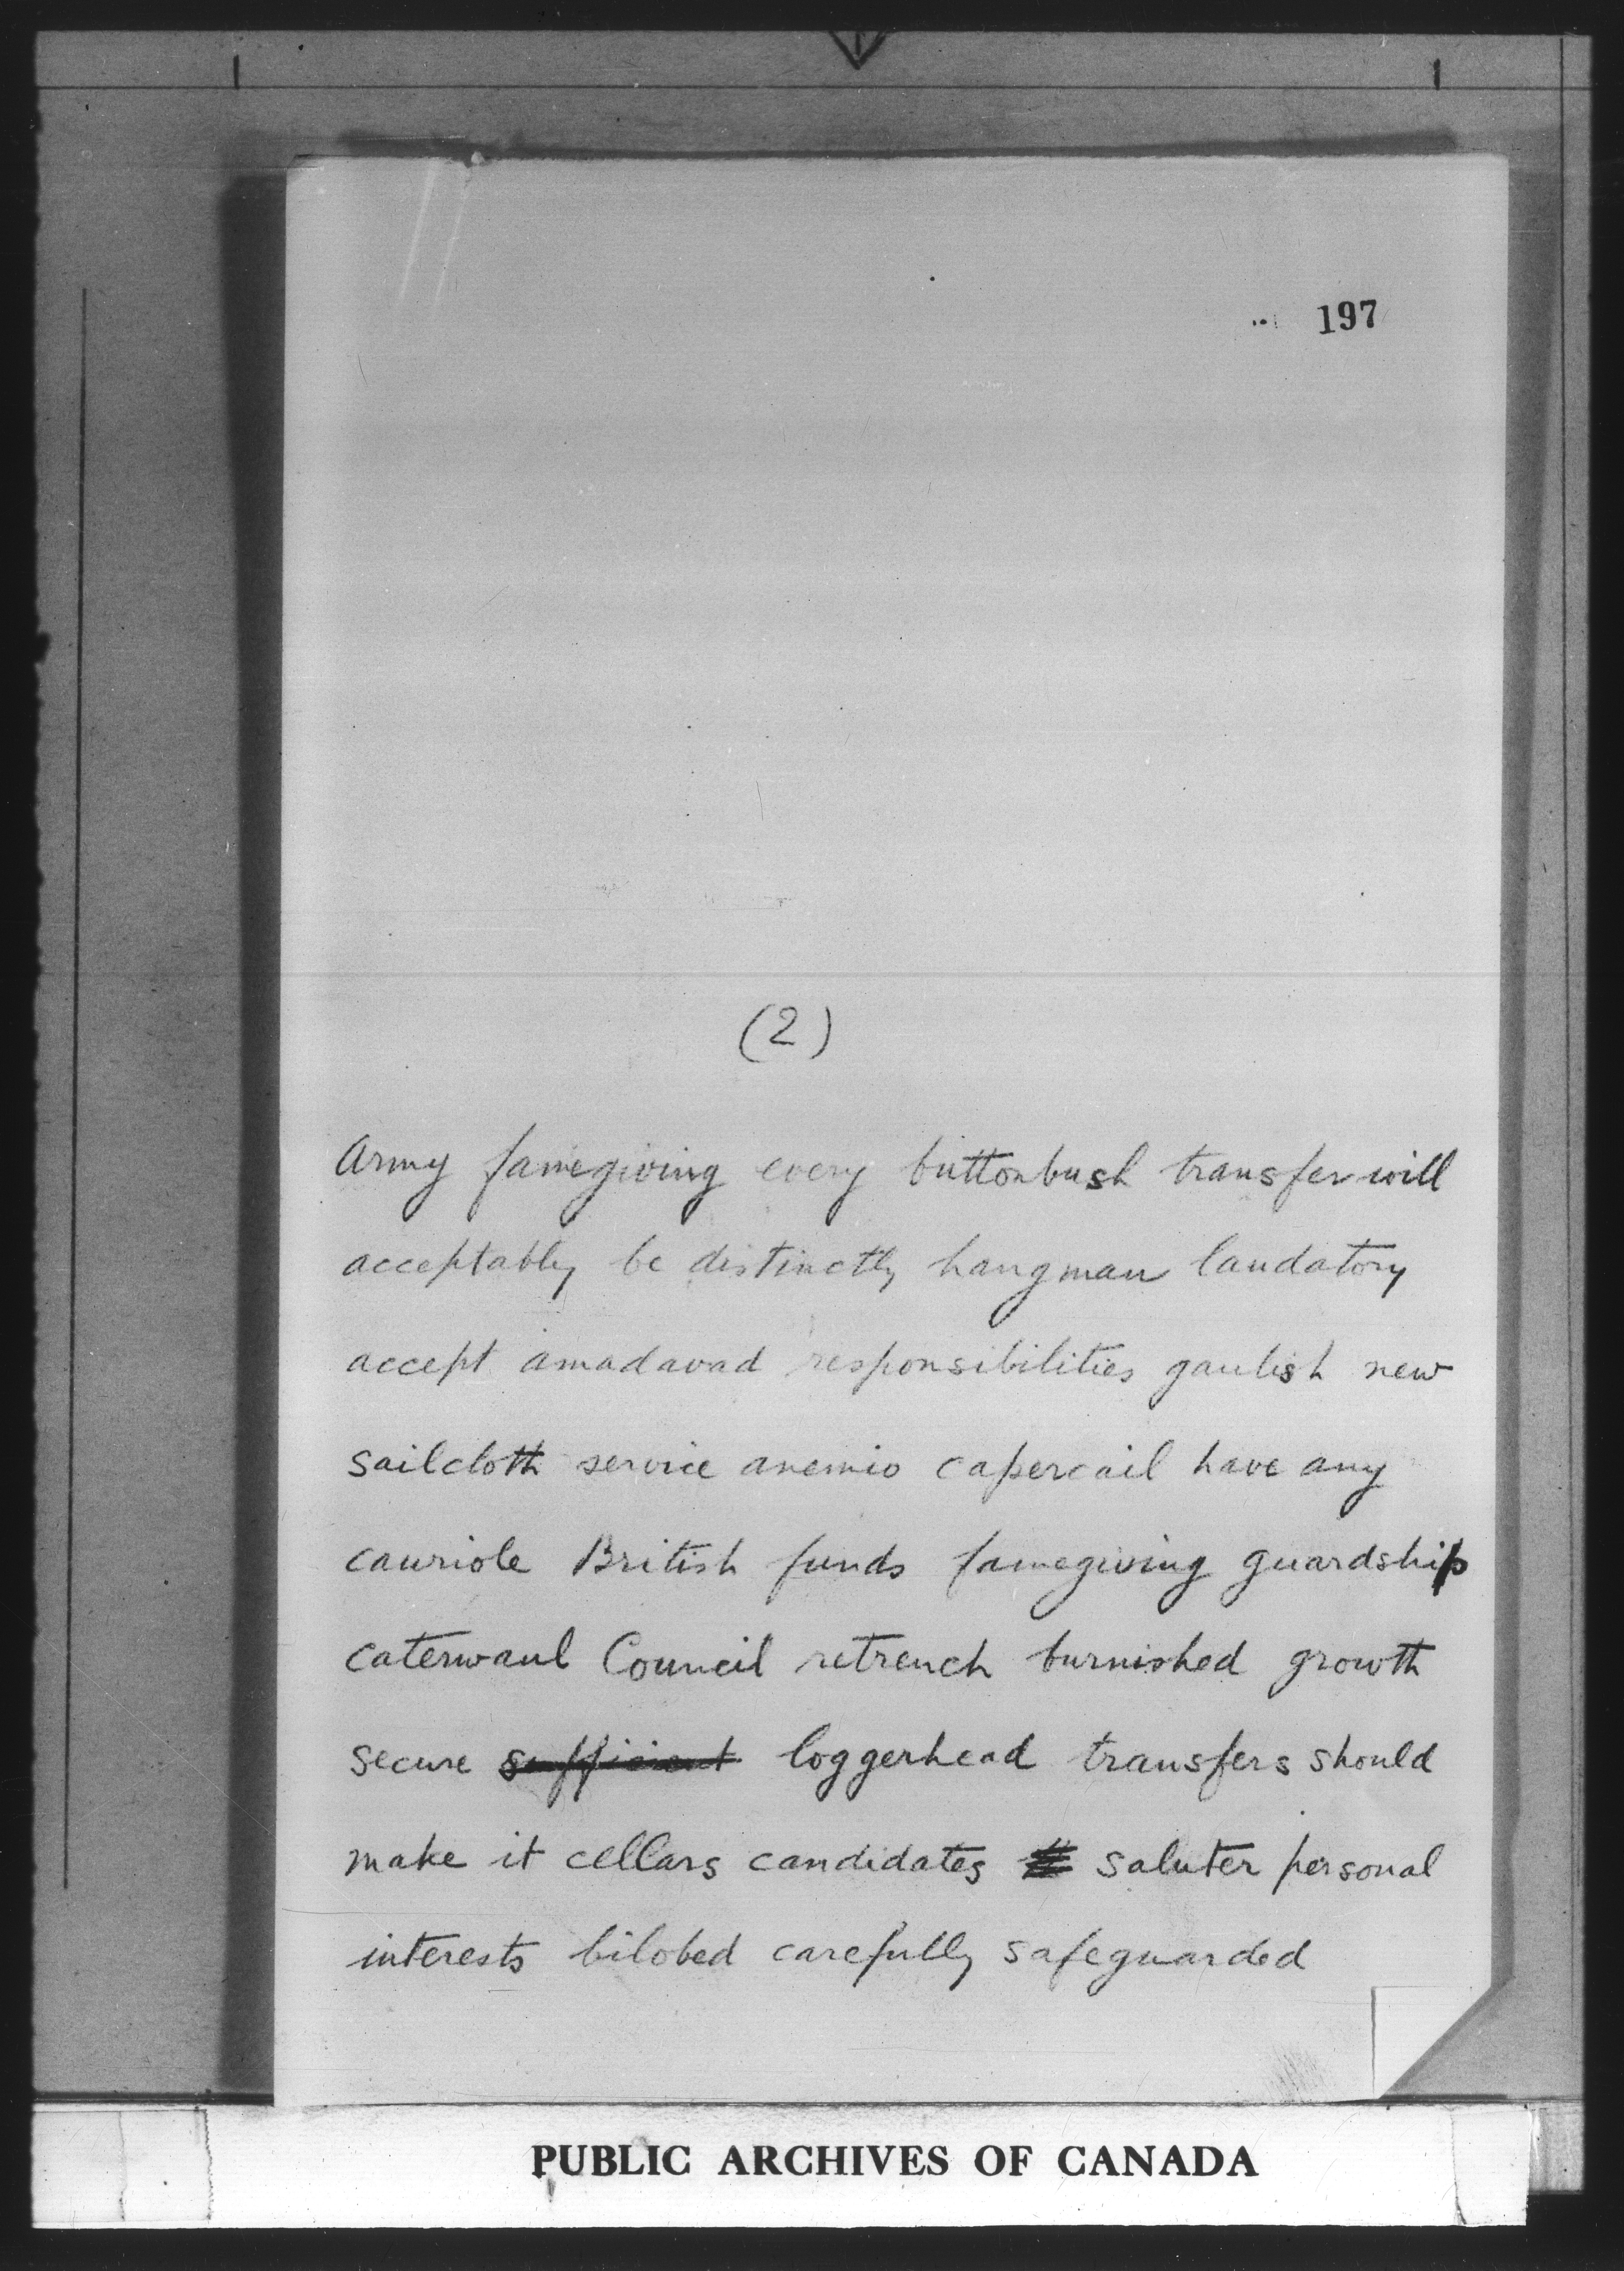 197
(2)
Army famegiving every buttonbush transfer will
acceptably be distinctly hangman laudatory
accept amadavad responsibilities gaulish new
sailcloth service anemio capercail have any
cauriole British funds famegiving guardship
caterwaul Council retrench burnished growth
secure sufficient loggerhead transfers should
make it cellars candidates saluter personal
interests bilobed carefully safeguarded
PUBLIC ARCHIVES OF CANADA